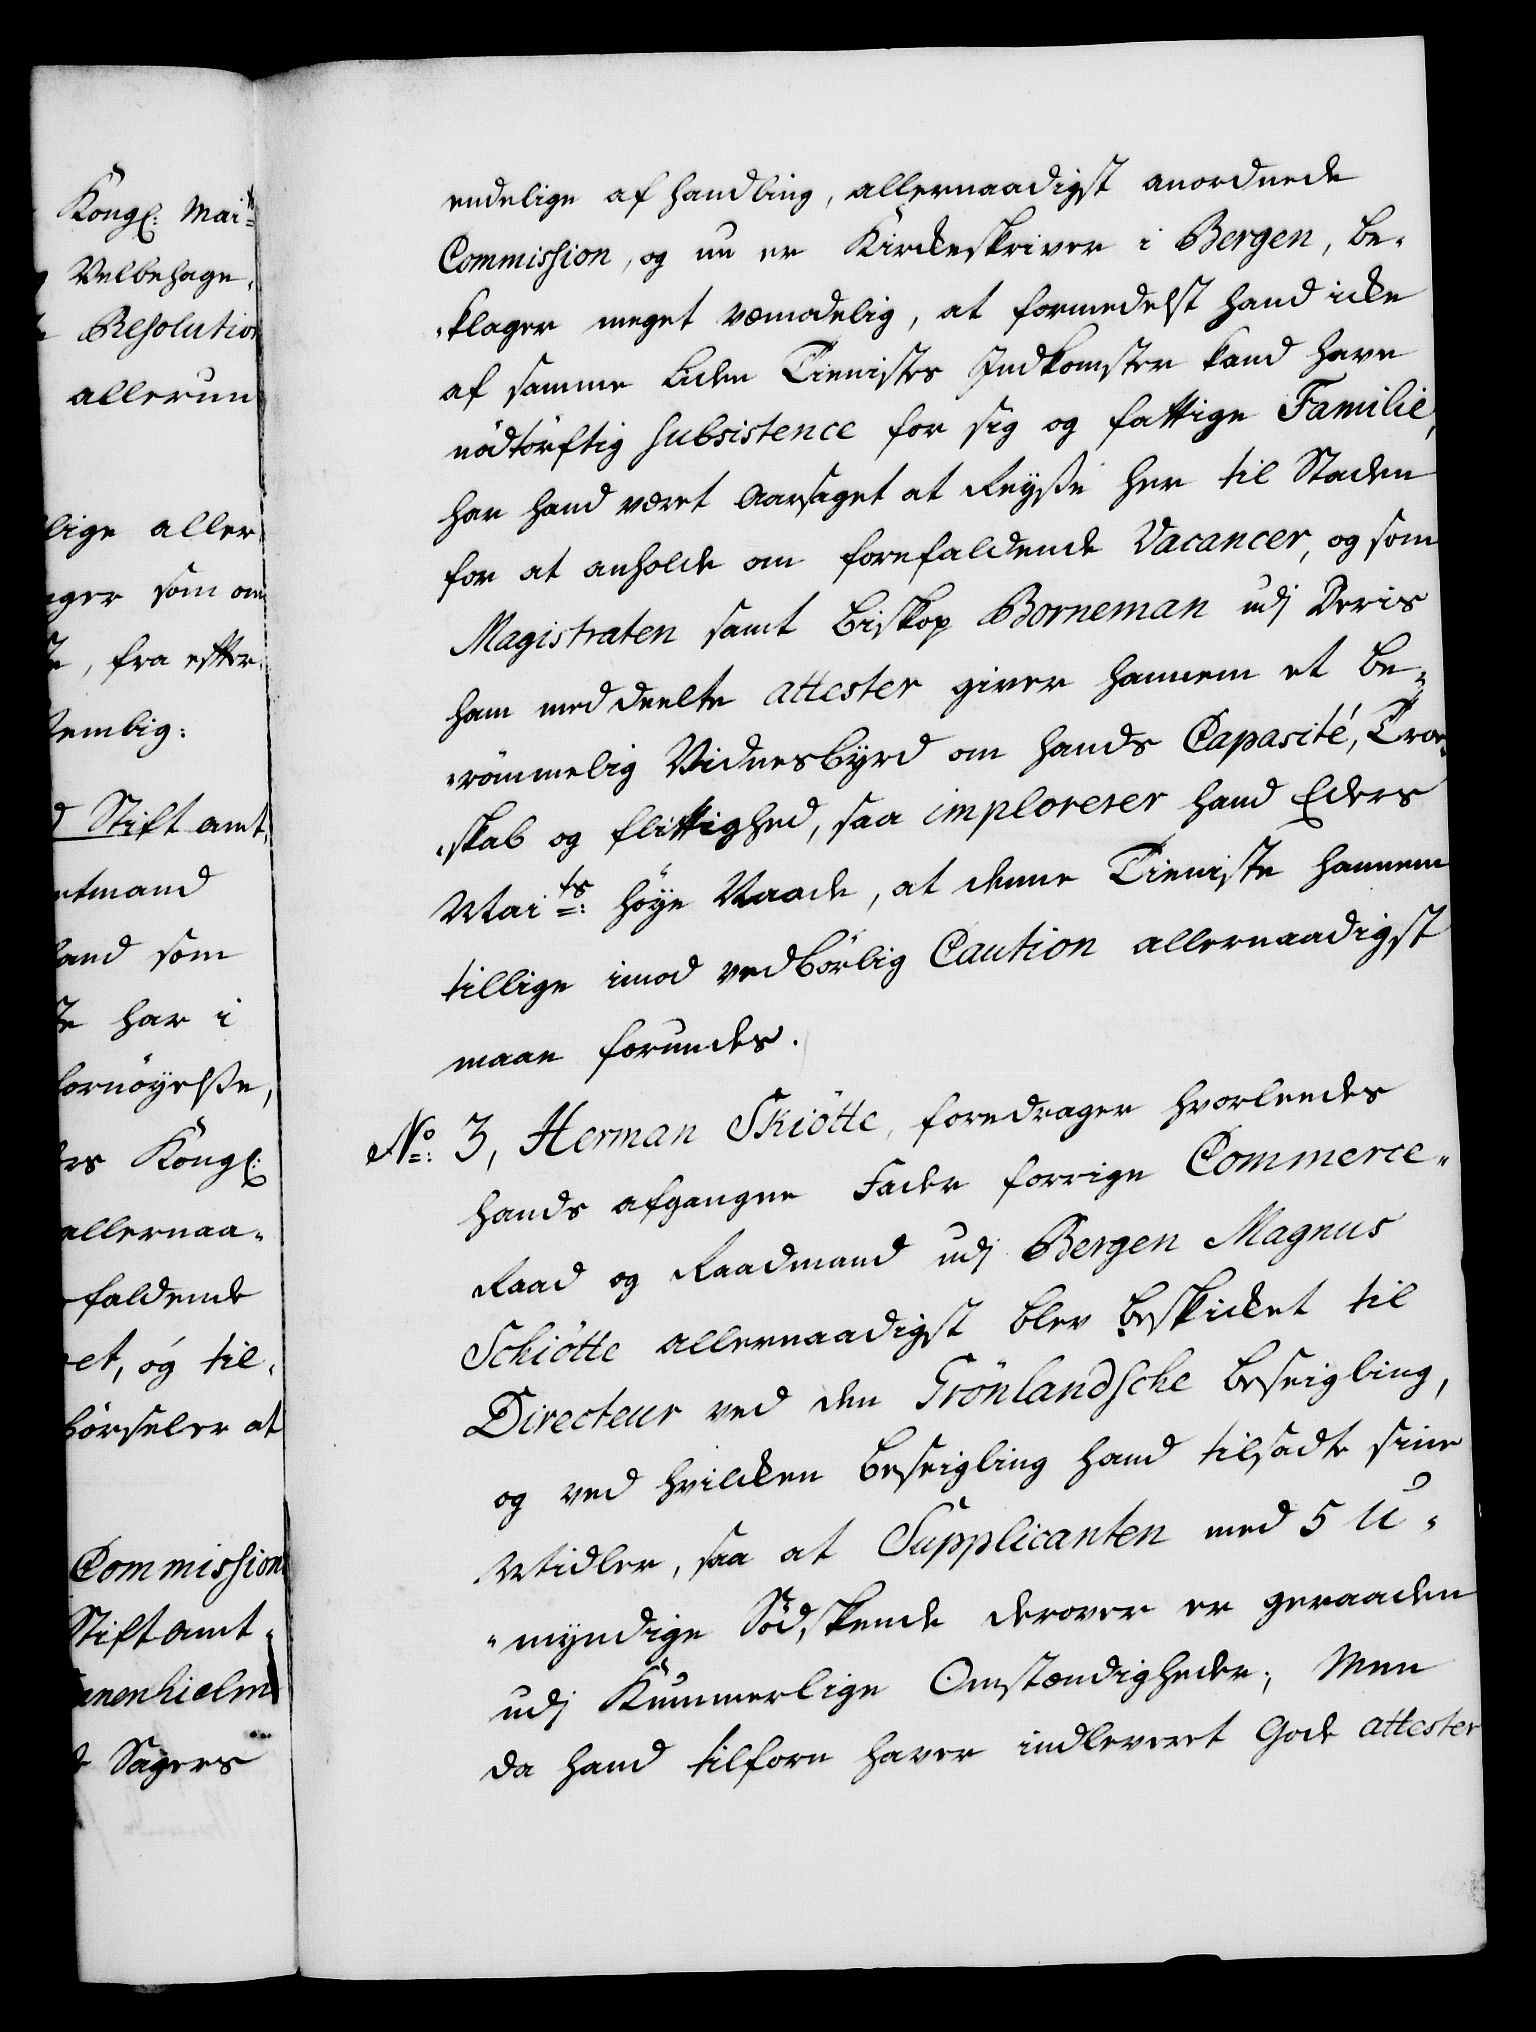 Kongl: Mai
Velbehage„
Resolution
allerun
lige aller
ger som om
te, fra efter„
emlig:
d Stiftamt„
mtmand
land som
te har i
fornöyelsse,
ers Kongl:
allernaa„
faldende
et, og til„
börseler at
Commission
Stiftamt„
anenhielm
Sagers
endelige af handling, allernaadigst anordnede
Commission, og nu er Kirkeskriver i Bergen, be„
„klager meget vemodelig, at formedelst hand icke
af samme liden Tienistes Indkomster kand have
nödtörftig subsistence for sig og fattige Familie,
har hand veret aarsaget at Reysse her til Staden
for at anholde om forefaldende Vacancer, og som
Magistraten samt Biskop Borneman udj Deris
ham meddeelte attester giver hannem et be„
„römmelig Vidnesbyrd om hands Capasité, Troe„
„skab og flittighed, saa imploreter hand Eders
Maits: höye Naade, at denne Tieniste hannem
tillige imod vedbörlig Caution allernaadigst
maae forundes.
No: 3, Herman Skiötte, foredrager hvorledes
hands afgangne Fader forrige Commerce„
Raad og Raadmand udj Bergen Magnus
Schiötte allernaadigst blev beskicket til
Directeur ved den Grönlandsche beseigling,
og ved hvilcken beseigling hand tilsadte sine
Midler, saa at Supplicanten med 5 U„
„myndige Södskende derover er geraaden
udj Kummerlige Omstændigheder; Men
da hand tilforn haver indleveret Gode attester